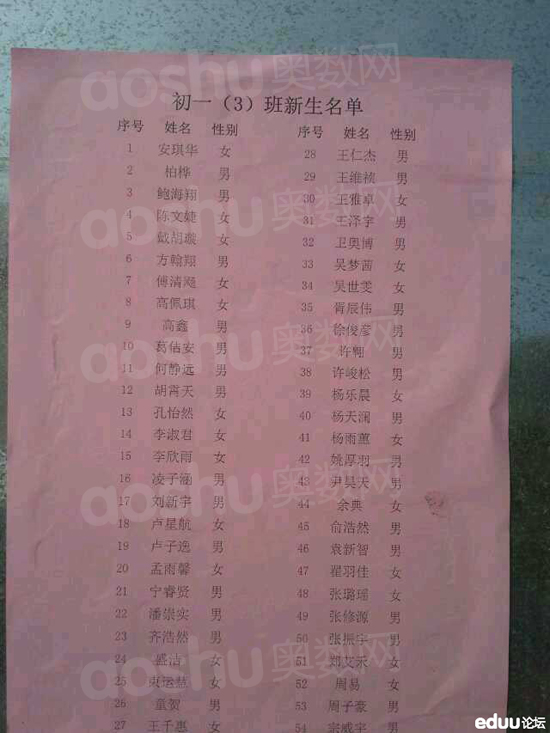 aoshu奥数网
初一（3）班新生名单
序号 姓名 性别 序号 姓名 性别
1 安琪华 女 28 王仁杰 男
2 柏桦 男 29 王维祯 男
3 鲍海翔 男 30 王雅卓 女
4 陈文婕 女 31 王泽宇 男
5 戴胡璇 女 32 卫奥博 男
6 方翰翔 男 33 吴梦茜 女
7 傅清飏 女 34 吴世雯 女
8 高佩琪 女 35 胥辰伟 男
9 高鑫 男 36 徐俊彦 男
10 葛佶安 男 37 许翱 男
11 何静远 男 38 许峻松 男
12 胡霄天 男 39 杨乐晨 女
13 孔怡然 女 40 杨天澜 男
14 李淑君 女 41 杨雨薰 女
15 李欣雨 女 42 姚淳羽 男
16 凌子涵 男 43 尹昊天 男
17 刘新宇 男 44 余典 女
18 卢星航 女 45 俞浩然 男
19 卢子逸 男 46 袁新智 男
20 孟雨馨 女 47 翟羽佳 女
21 宁睿贤 男 48 张璐瑶 女
22 潘崇实 男 49 张修源 男
23 齐浩然 男 50 张振宇 男
24 盛洁 女 51 郑文禾 女
25 女 52 周易 女
26 童贺 男 53 周子豪 男
27 王千惠 女 54 宗威宇 男
eduu论坛